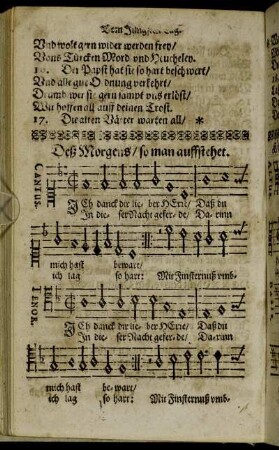 Vom Jüngsten Tag.
Vnd wolt gern wider werden frey/
Vons Türcken Mord vnd Heucheley.
16. Der Papst hat sie so hart beschwert/
Vnd alle gute Ordnung verkehrt/
Drumb wer sie gern sampt vns erlöst/
Wir hoffen all auff deinen Trost.
17. Die alten Väter warten all/ *
Deß Morgens/ so man auffstehet.
CANTUS.
ICh danck dir lie- ber HErre/ Daß du
In die- ser Nacht gefer- de/ Da- rinn
mich hast bewart/
ich lag so hart: Mit Finsternuß vmb-
TENOR.
ICh danck dir lie- ber HErre/ Daß du
In die- ser Nacht gefer- de/ Da- rinn
mich hast be- wart/
ich lag so hart: Mit Finsternuß vmb-